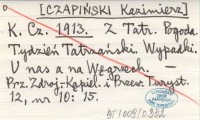 [CZAPIŃSKI Kazimierz]
K. Cz. 1913. Z Tatr. Pogoda.
Tydzień Tatrzański. Wypadki.
U nas a na Węgrzech. —
Prz. Zdroj.-Kąpiel. i Przew. Turyst.
12, nr 10: 15.